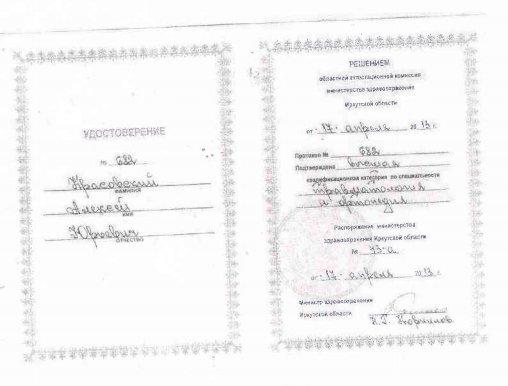 УДОСТОВЕРЕНИЕ
№ 682
Красовский
ФАМИЛИЯ
Алексей
ИМЯ
Юрьевич
ОТЧЕСТВО
РЕШЕНИЕМ
областной аттестационной комиссии
министерства здравоохранения
Иркутской области
от "17" апреля 2013 г.
Протокол № 682
Подтверждена высшая
квалификационная категория по специальности
травматология
и ортопедия
Распоряжение министерства
здравоохранения Иркутской области
№ 73-а
от "17" апреля 2013 г.
Министр здравоохранения
Иркутской области